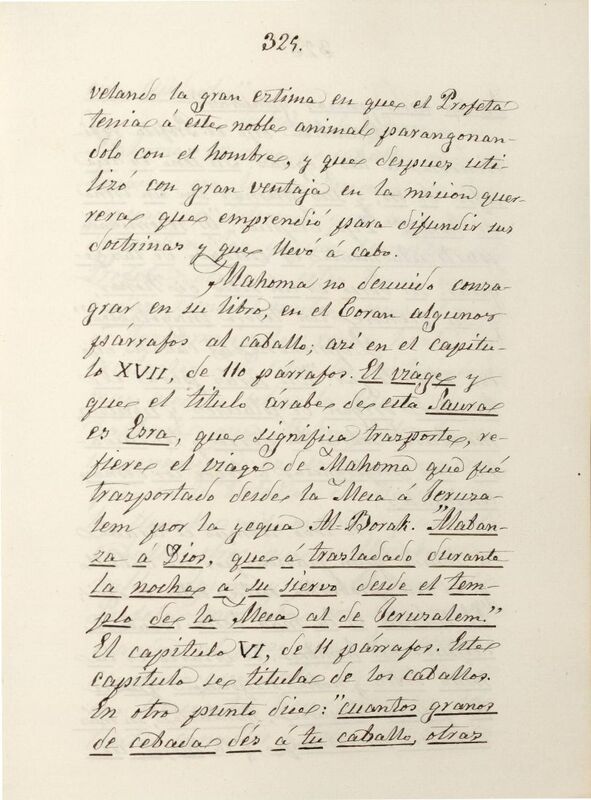 325.
velando la gran estima en que el Profeta
tenia á este noble animal parangonan-
dolo con el hombre, y que despues uti-
lizó con gran ventaja en la mision guer-
rera que emprendió para difundir sus
doctrinas y que llevó á cabo.
Mahoma no descuido consa-
grar en su libro, en el Coran algunos
párrafos al caballo; asi en el capitu-
lo XVII, de 110 párrafos. El viage y
que el titulo árabe de esta Saura
es Esra, que significa trasporte, re-
fiere el viage de Mahoma que fué
trasportado desde la Meca á Jerusa-
lem por la yegua Al-Borak. "Alaban-
za á Dios, que á trasladado durante
la noche á su siervo desde el tem-
plo de la Meca al de Jerusalem."
El capitulo VI, de 11 párrafos. Este
capitulo se titula de los caballos.
En otro punto dice: "cuantos granos
de cebada dés á tu caballo, otras